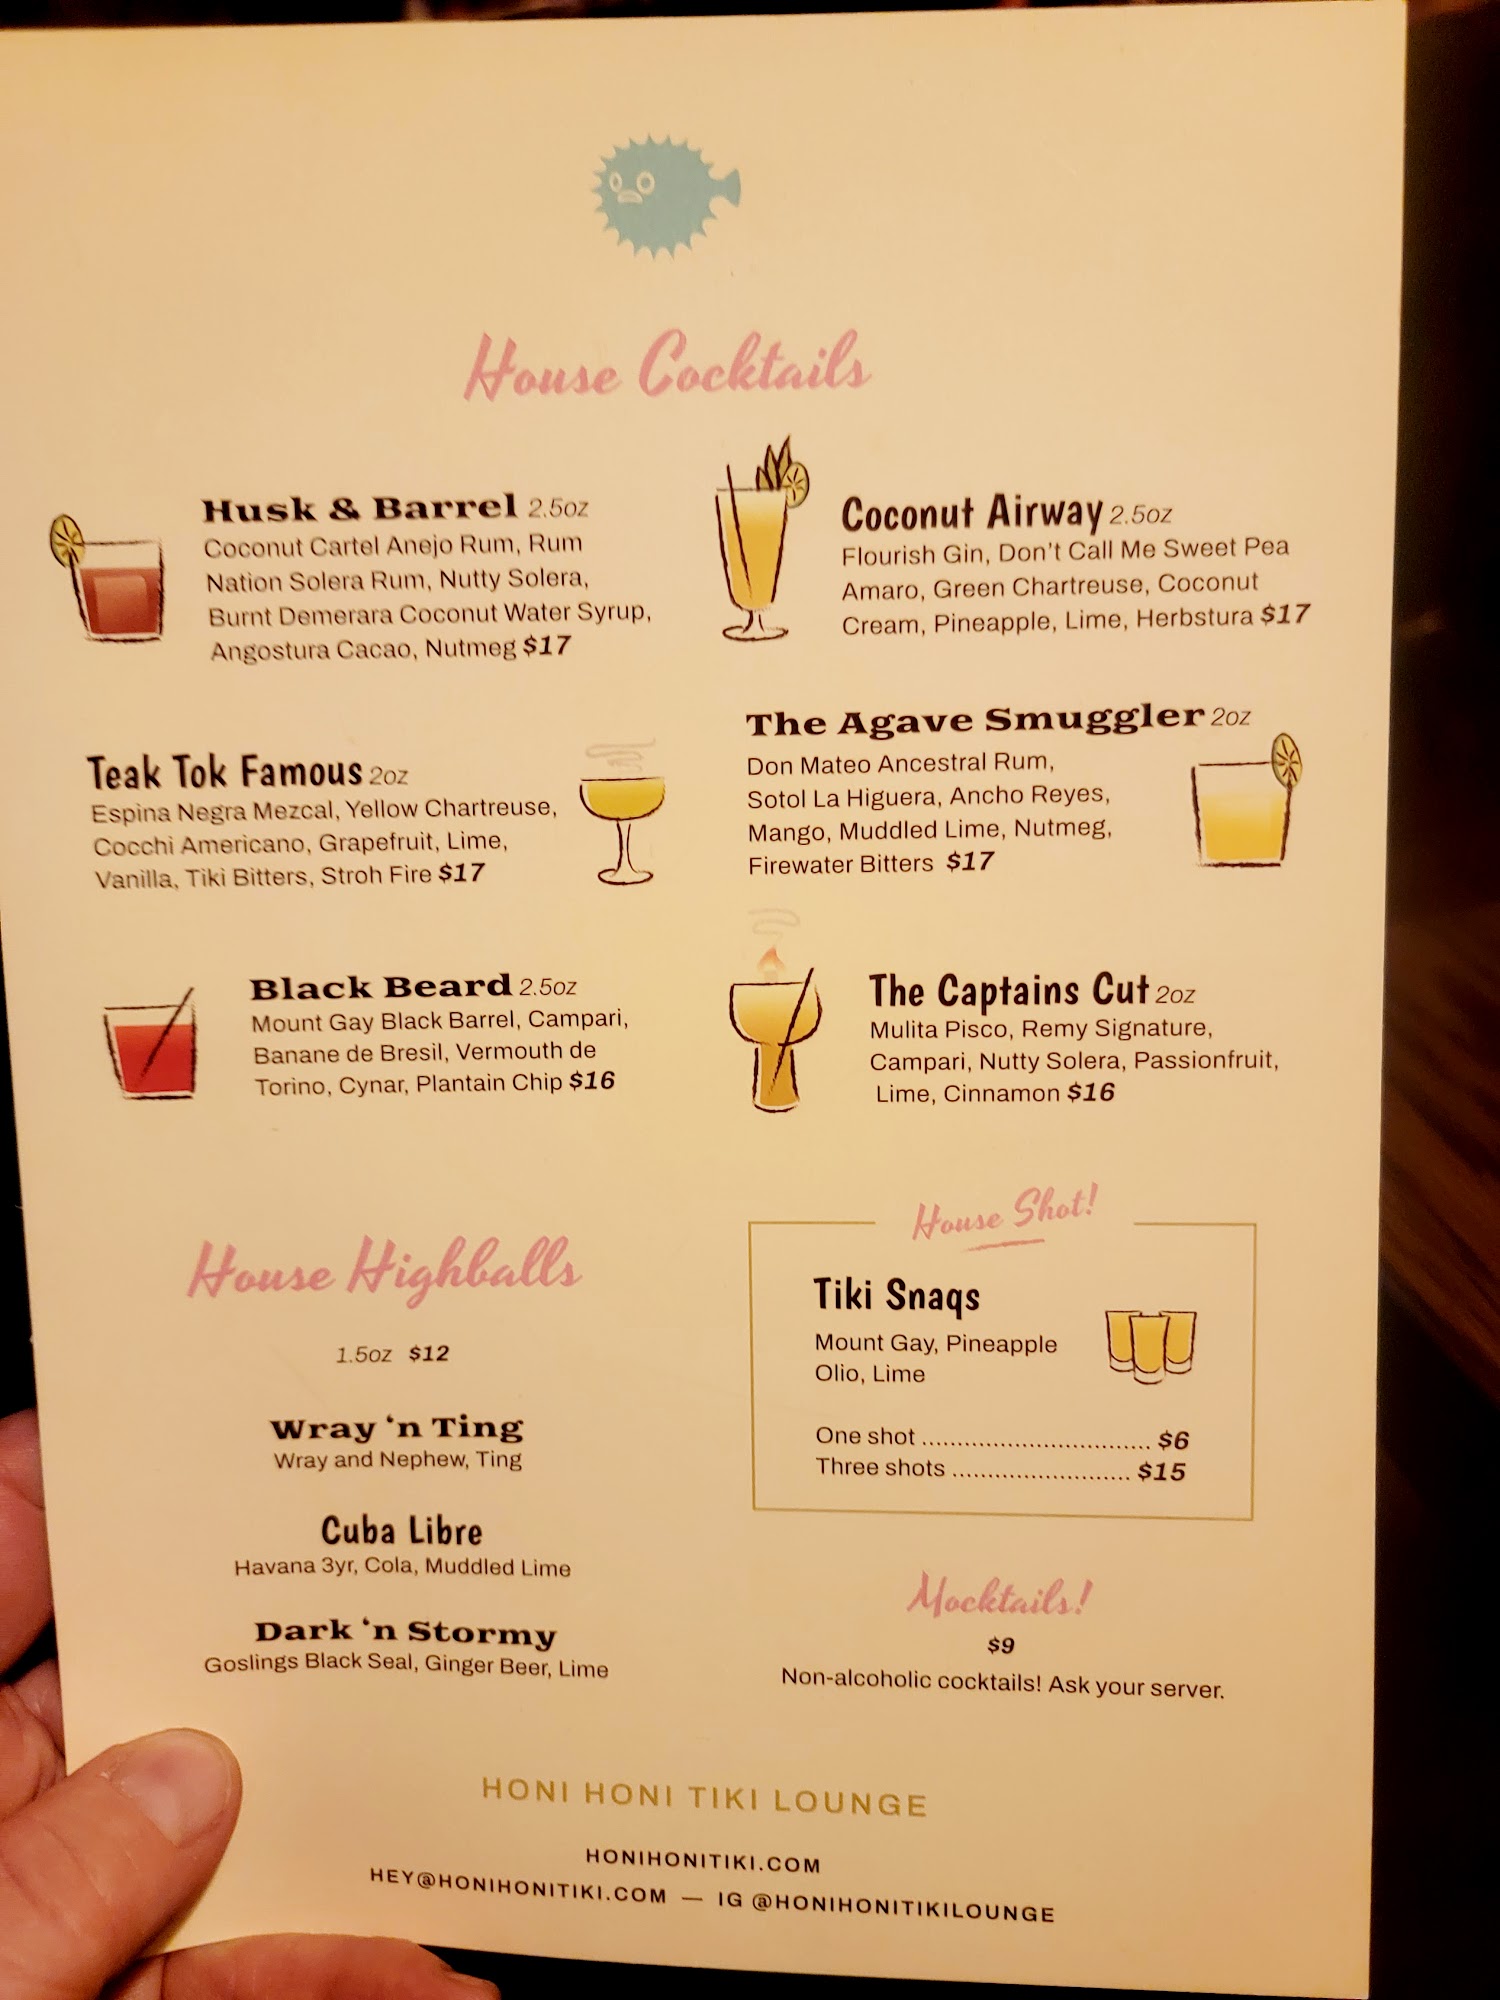 House Cocktails
Husk & Barrel 2.5oz
Coconut Cartel Anejo Rum, Rum
Nation Solera Rum, Nutty Solera,
Burnt Demerara Coconut Water Syrup,
Angostura Cacao, Nutmeg $17
Coconut Airway 2.5oz
Flourish Gin, Don't Call Me Sweet Pea
Amaro, Green Chartreuse, Coconut
Cream, Pineapple, Lime, Herbstura $17
Teak Tok Famous 2oz
Espina Negra Mezcal, Yellow Chartreuse,
Cocchi Americano, Grapefruit, Lime,
Vanilla, Tiki Bitters, Stroh Fire $17
The Agave Smuggler 2oz
Don Mateo Ancestral Rum,
Sotol La Higuera, Ancho Reyes,
Mango, Muddled Lime, Nutmeg,
Firewater Bitters $17
Black Beard 2.5oz
Mount Gay Black Barrel, Campari,
Banane de Bresil, Vermouth de
Torino, Cynar, Plantain Chip $16
The Captains Cut 2oz
Mulita Pisco, Remy Signature,
Campari, Nutty Solera, Passionfruit,
Lime, Cinnamon $16
House Highballs
1.5oz $12
Wray 'n Ting
Wray and Nephew, Ting
Cuba Libre
Havana 3yr, Cola, Muddled Lime
Dark 'n Stormy
Goslings Black Seal, Ginger Beer, Lime
House Shot!
Tiki Snaqs
Mount Gay, Pineapple
Olio, Lime
One shot ............................... $6
Three shots ........................ $15
Mocktails!
$9
Non-alcoholic cocktails! Ask your server.
HONI HONI TIKI LOUNGE
HONIHONITIKI.COM
HEY@HONIHONITIKI.COM — IG @HONIHONITIKILOUNGE